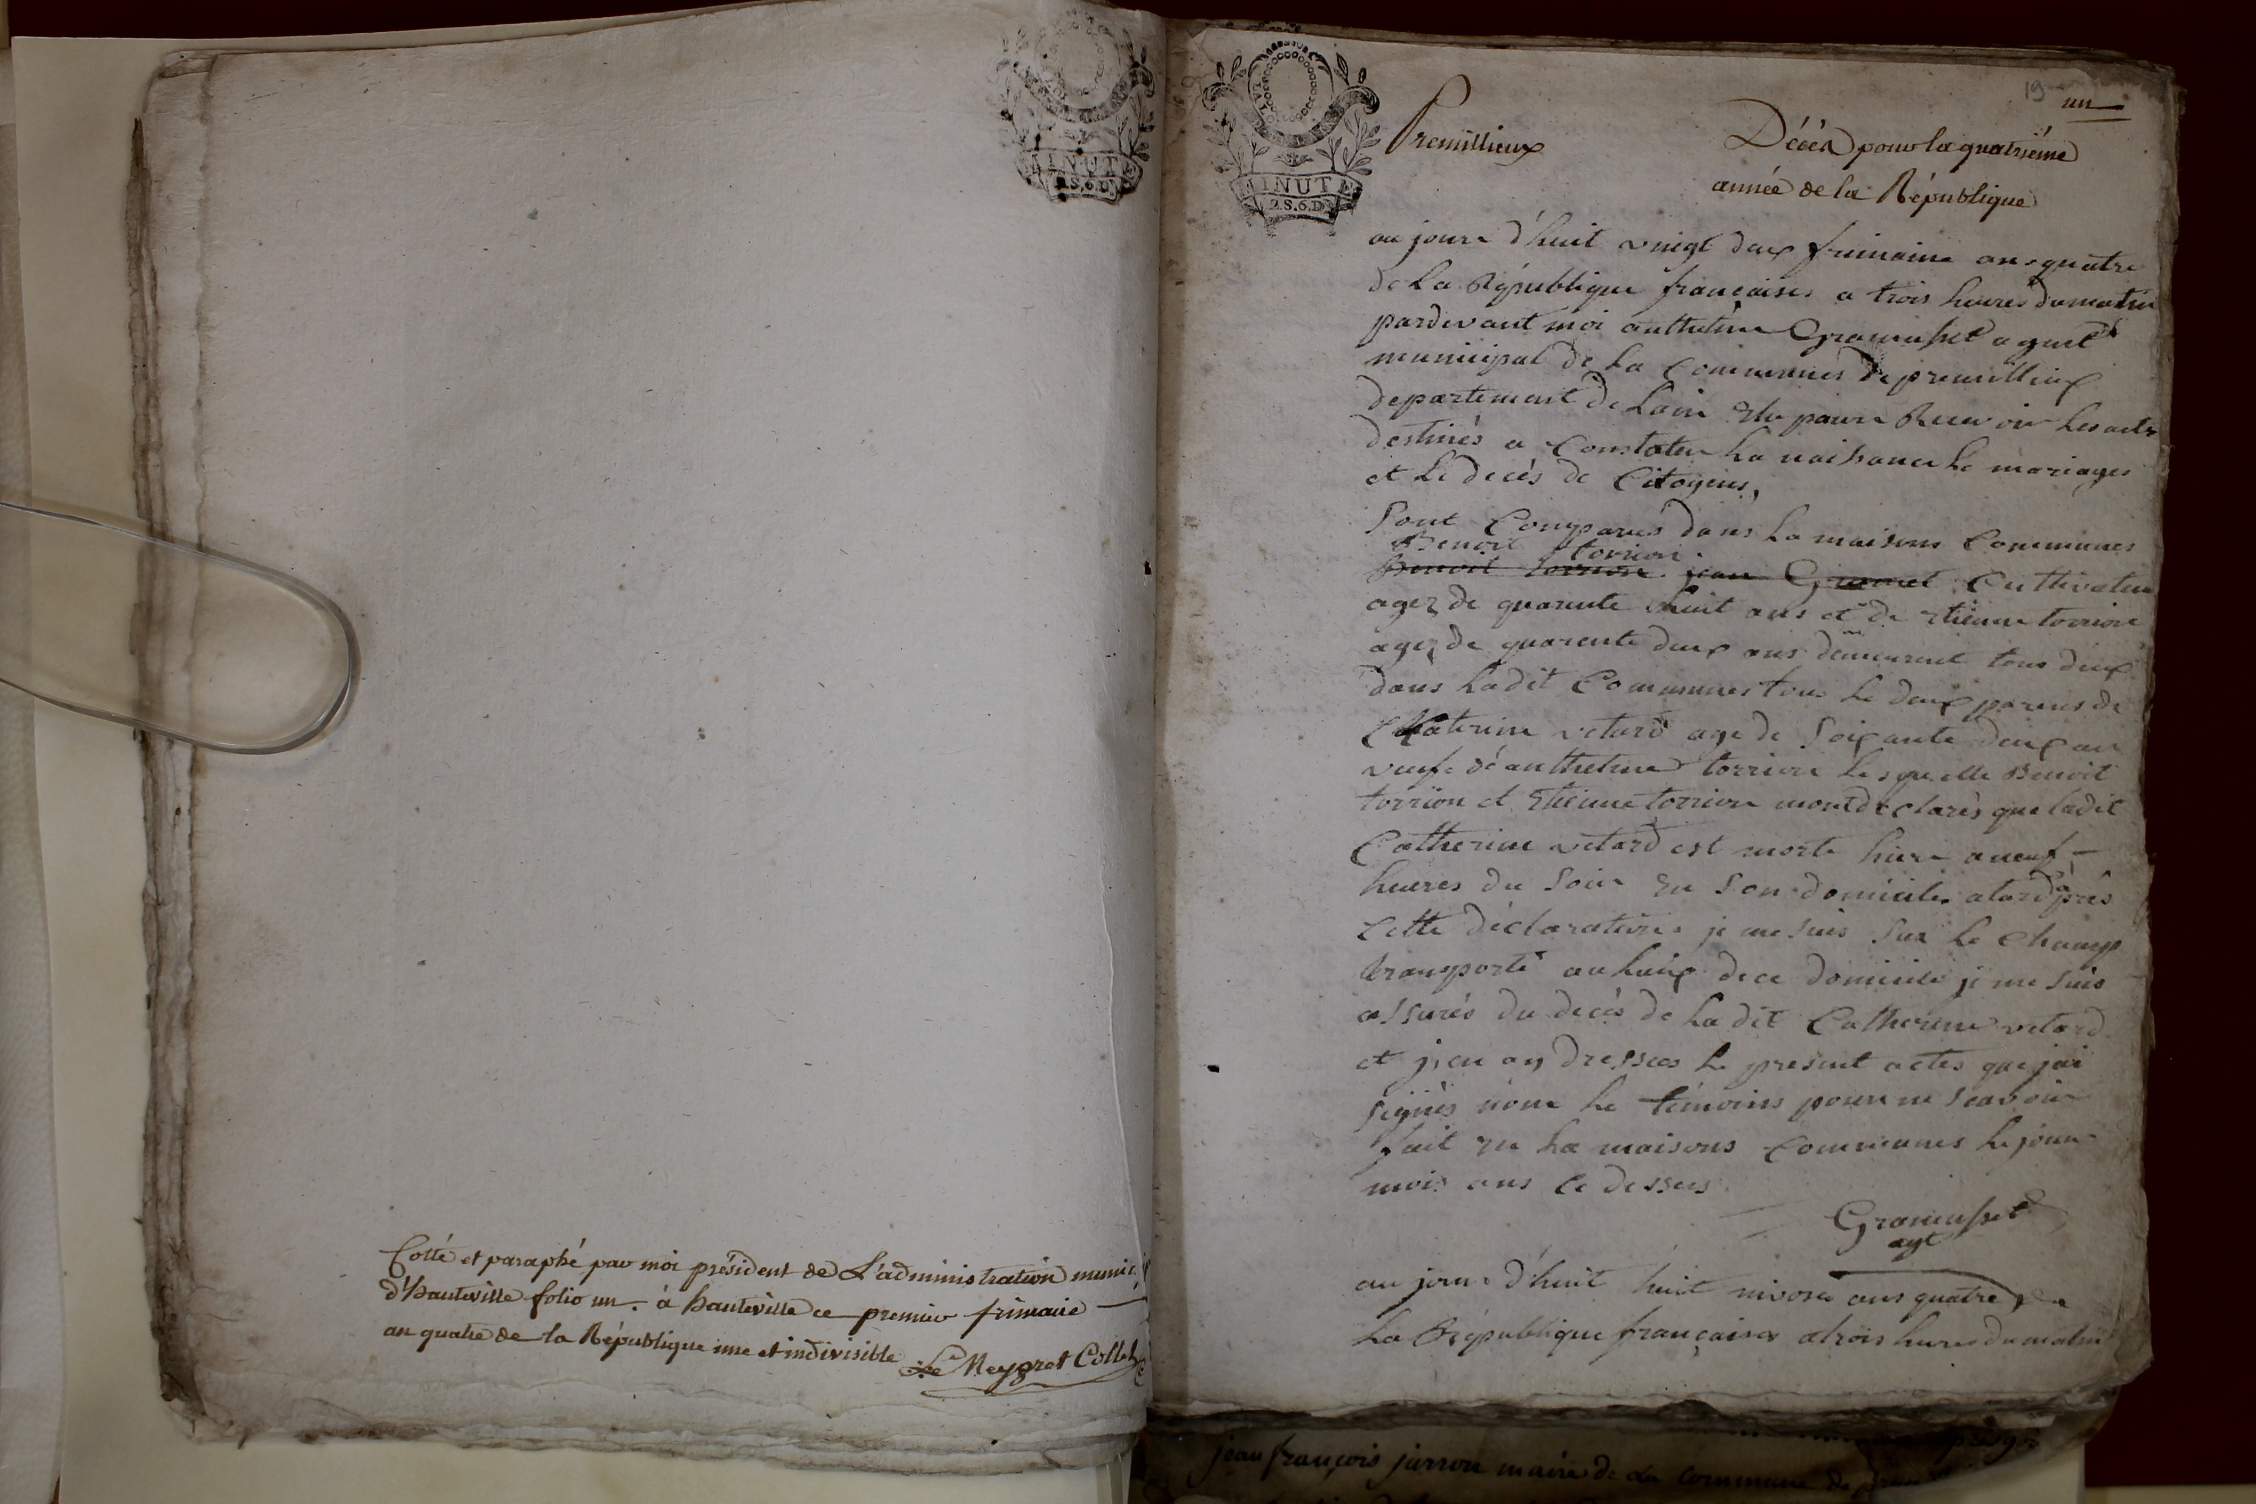 MINUTE
2.S.6.D
Cotté et paraphé par moi président de L'administration munic
d'hauteville folio un. à hauteville ce premier frimaire
an quatre de la République une et indivisible Le Meygret Collet
MINUTE
2.S.6.D
19
un
Premillieux
Décèd pour la quatrième
année de la République
au jourd d'huit vingt deux frimaire ans quatre
de La République françaises a trois heures du matin
pardevant moi anthelme Gramusset agent
municipal de La Communes de premillieux
departement de Lain Elu pour Recevoir Les acte
destinés a Constater La naissance Le mariages
et Le decès de Citoyens,
Sont Comparus dans La maisons Communes
Benoit torrion
Benoit torrion jean Cultivateur
agez de quarente huit ans et de Etienne torrion
agez de quarente deux ans demeurent tous deux
dans Ladit Communes tous Le deux parens de
Caterine vetard age de Soixante deux an
veufe de anthelme torrion Lesquelle Benoit
torrion et Etienne torrion mont declarès que ladit
Catherine vetard est morte hiere a neuf
heures du Soir En Son domicile. alord après
Cette déclaration je me suis Sur Le Champ
transporté au Lieux de ce domicile je me suis
assurés du decès de Ladit Catherine vetard
et jien ay dressees Le present actes que jai
signès none Le témoins pour ne Seavoir
fait En La maisons Communes Le jour
mois ans Ce dessus
Gramusset
agt
au jour d'huit huit nivose ans quatre de
La République françaises a trois heures du matin
jean françois jarron maire de La commune de